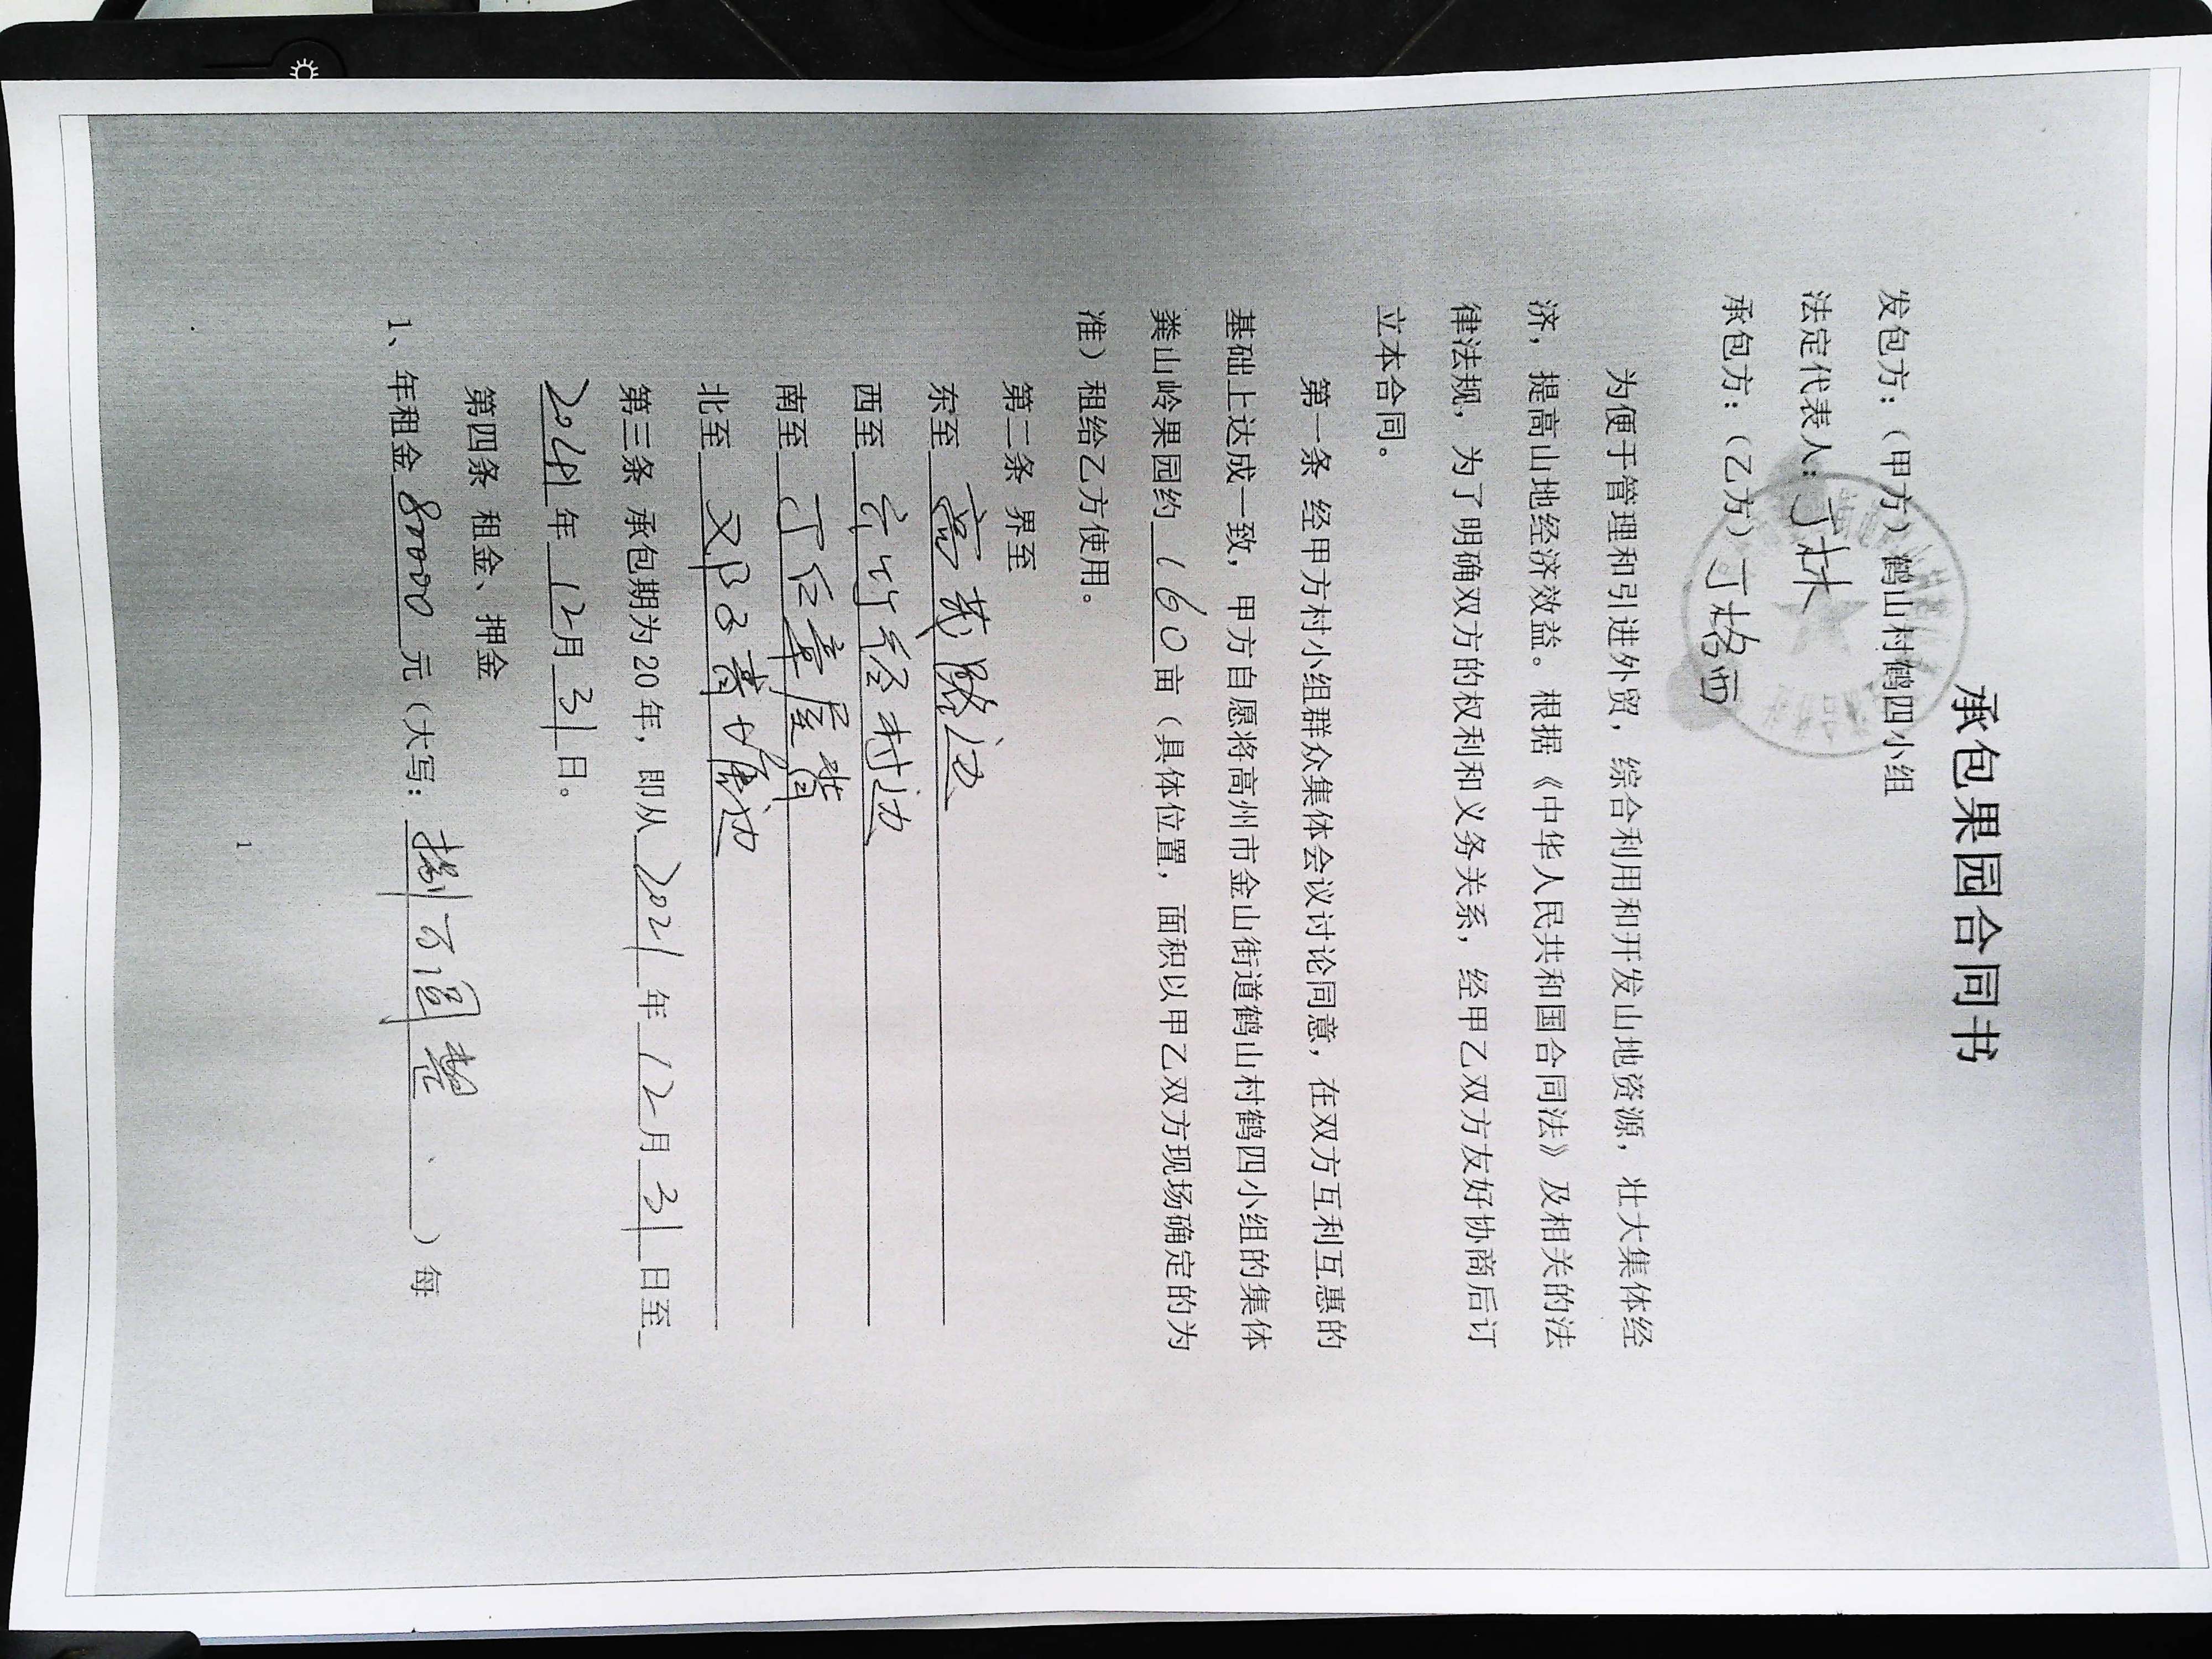 承包果园合同书
发包方：（甲方）鹤山村鹤四小组
法定代表人：丁林
承包方：（乙方）丁
为便于管理和引进外贸，综合利用和开发山地资源，壮大集体经
济，提高山地经济效益。根据《中华人民共和国合同法》及相关的法
律法规，为了明确双方的权利和义务关系，经甲乙双方友好协商后订
立本合同。
第一条 经甲方村小组群众集体会议讨论同意，在双方互利互惠的
基础上达成一致，甲方自愿将高州市金山街道鹤山村鹤四小组的集体
粪山岭果园约160亩（具体位置，面积以甲乙双方现场确定的为
准）租给乙方使用。
第二条 界至
东至 路边
西至 村边
南至 丁 屋背
北至 边
第三条 承包期为20年，即从2021年12月31日至
2041年12月31日。
第四条 租金、押金
1、年租金80000元（大写：捌万圆整）每
1